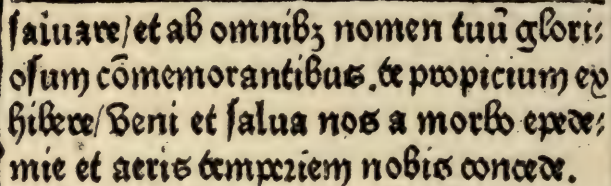 saluare/et ab omnibꝫ nomen tuū glori⸗
osum cōmemorantibus. te propicium ex
hibere/Veni et salua nos a morbo epede⸗
mie et aeris temperiem nobis concede.